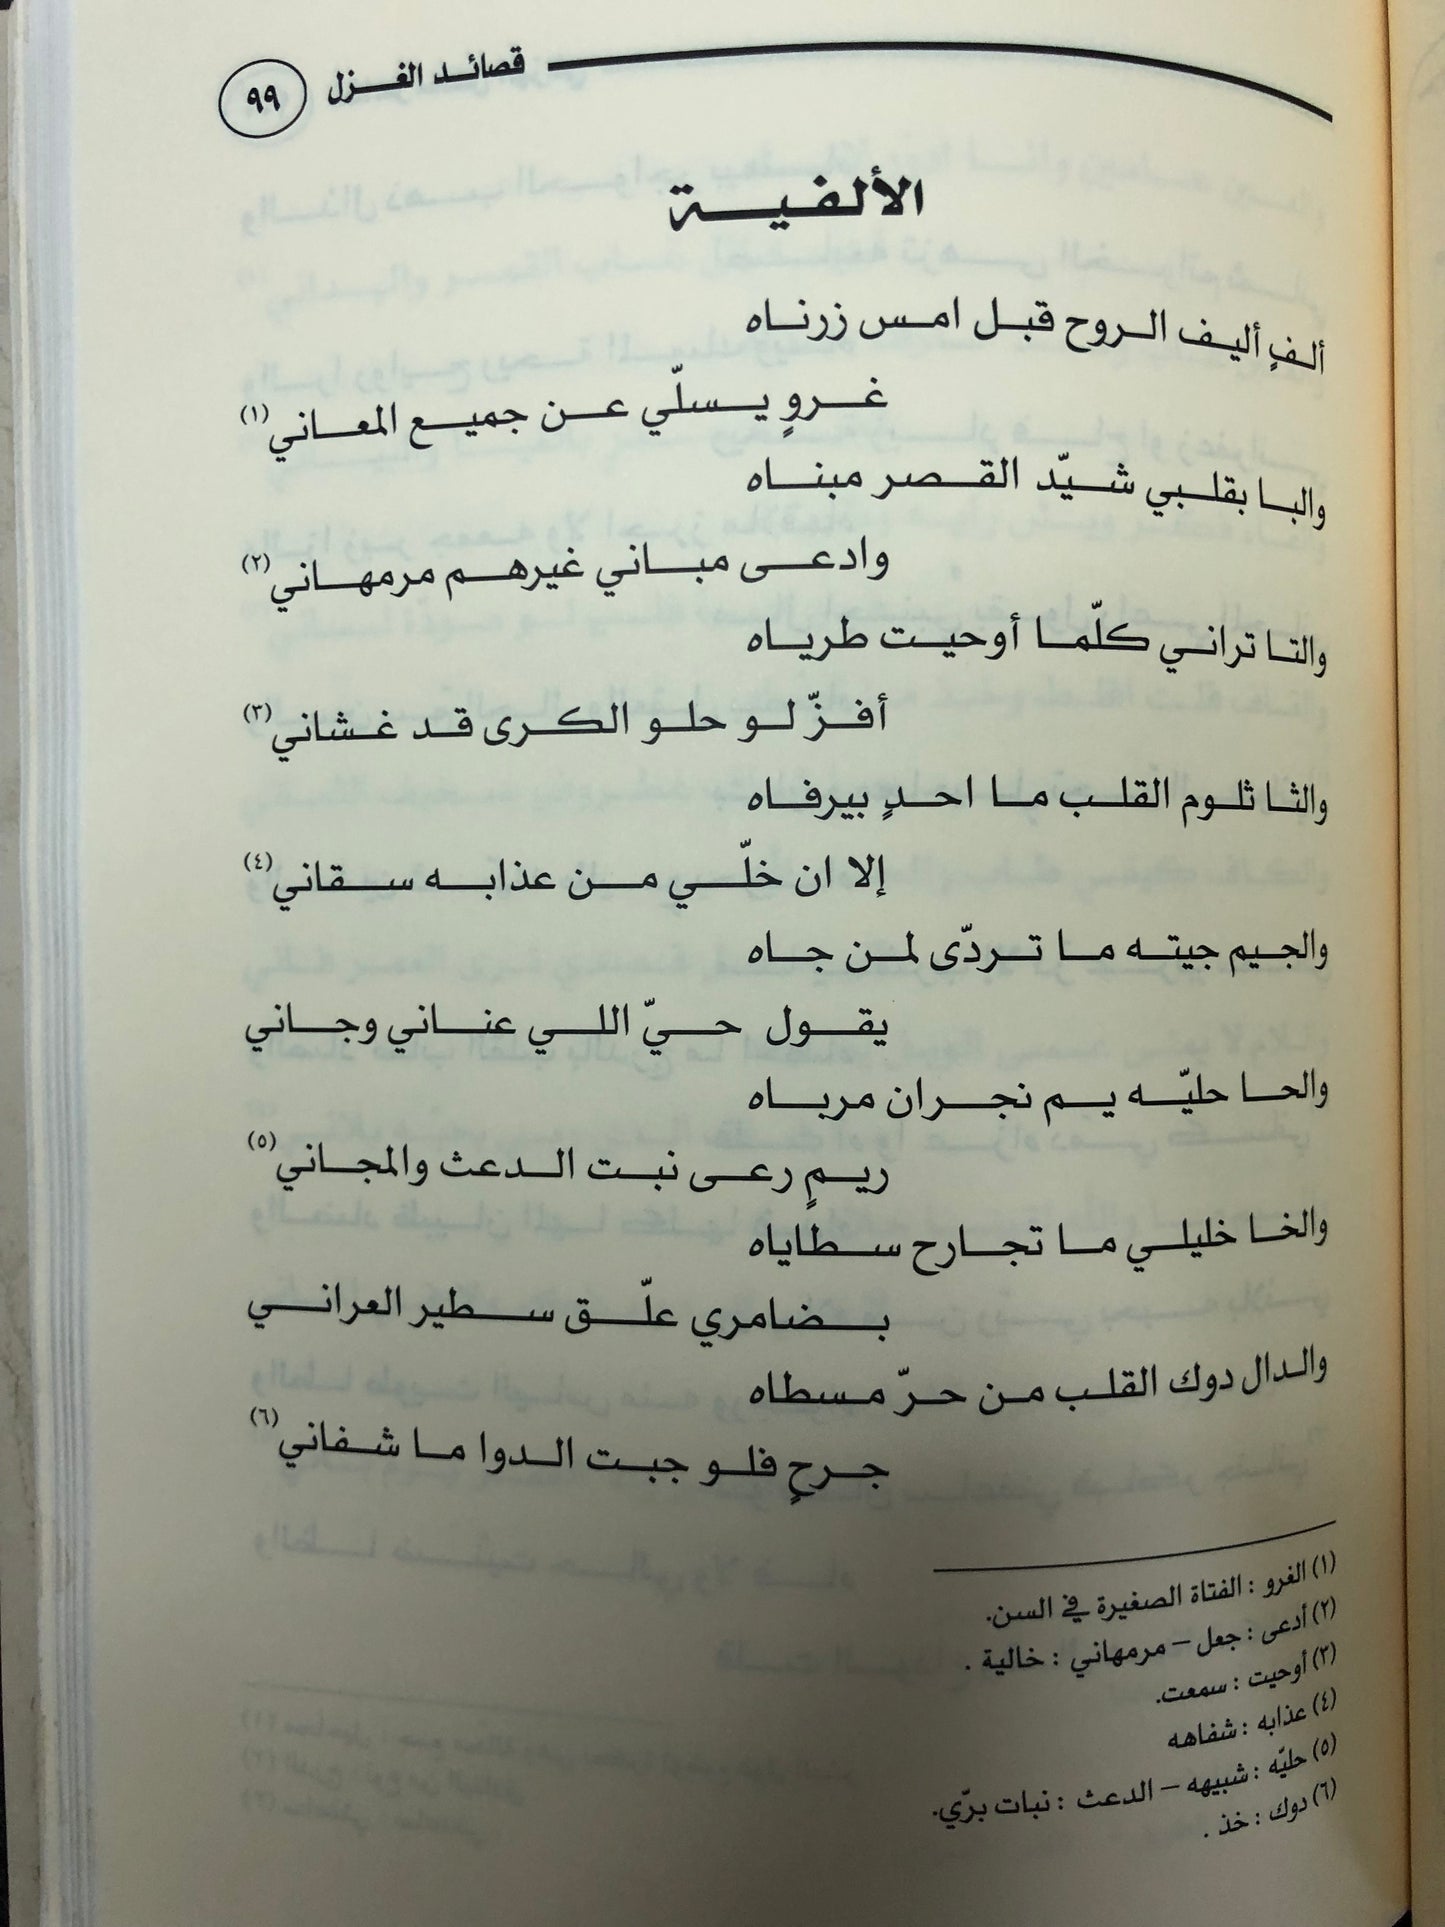 قصائد الغزل ٩٩
الألفية
ألفٍ أليف الروح قبل امس زرناه
غروٍ يسلّي عن جميع المعاني (١)
والبا بقلبي شيّد القصر مبناه
وادعى مباني غيرهم مرمهاني (٢)
والتا تراني كلّما أوحيت طرياه
أفزّ لو حلو الكرى قد غشاني (٣)
والثا ثلوم القلب ما احدٍ بيرفاه
إلا ان خلّي من عذابه سقاني (٤)
والجيم جيته ما تردّى لمن جاه
يقول حيّ اللي عناني وجاني
والحا حليّه يم نجران مرباه
ريمٍ رعى نبت الدعث والمجاني (٥)
والخا خليلي ما تجارح سطاياه
بضامري علّق سطير العراني
والدال دوك القلب من حرّ مسطاه
جرحٍ فلو جبت الدوا ما شفاني (٦)
(١) الغرو : الفتاة الصغيرة في السن.
(٢) أدعى : جعل – مرمهاني : خالية .
(٣) أوحيت : سمعت.
(٤) عذابه : شفاهه
(٥) حليّه : شبيهه – الدعث : نبات برّي.
(٦) دوك : خذ .